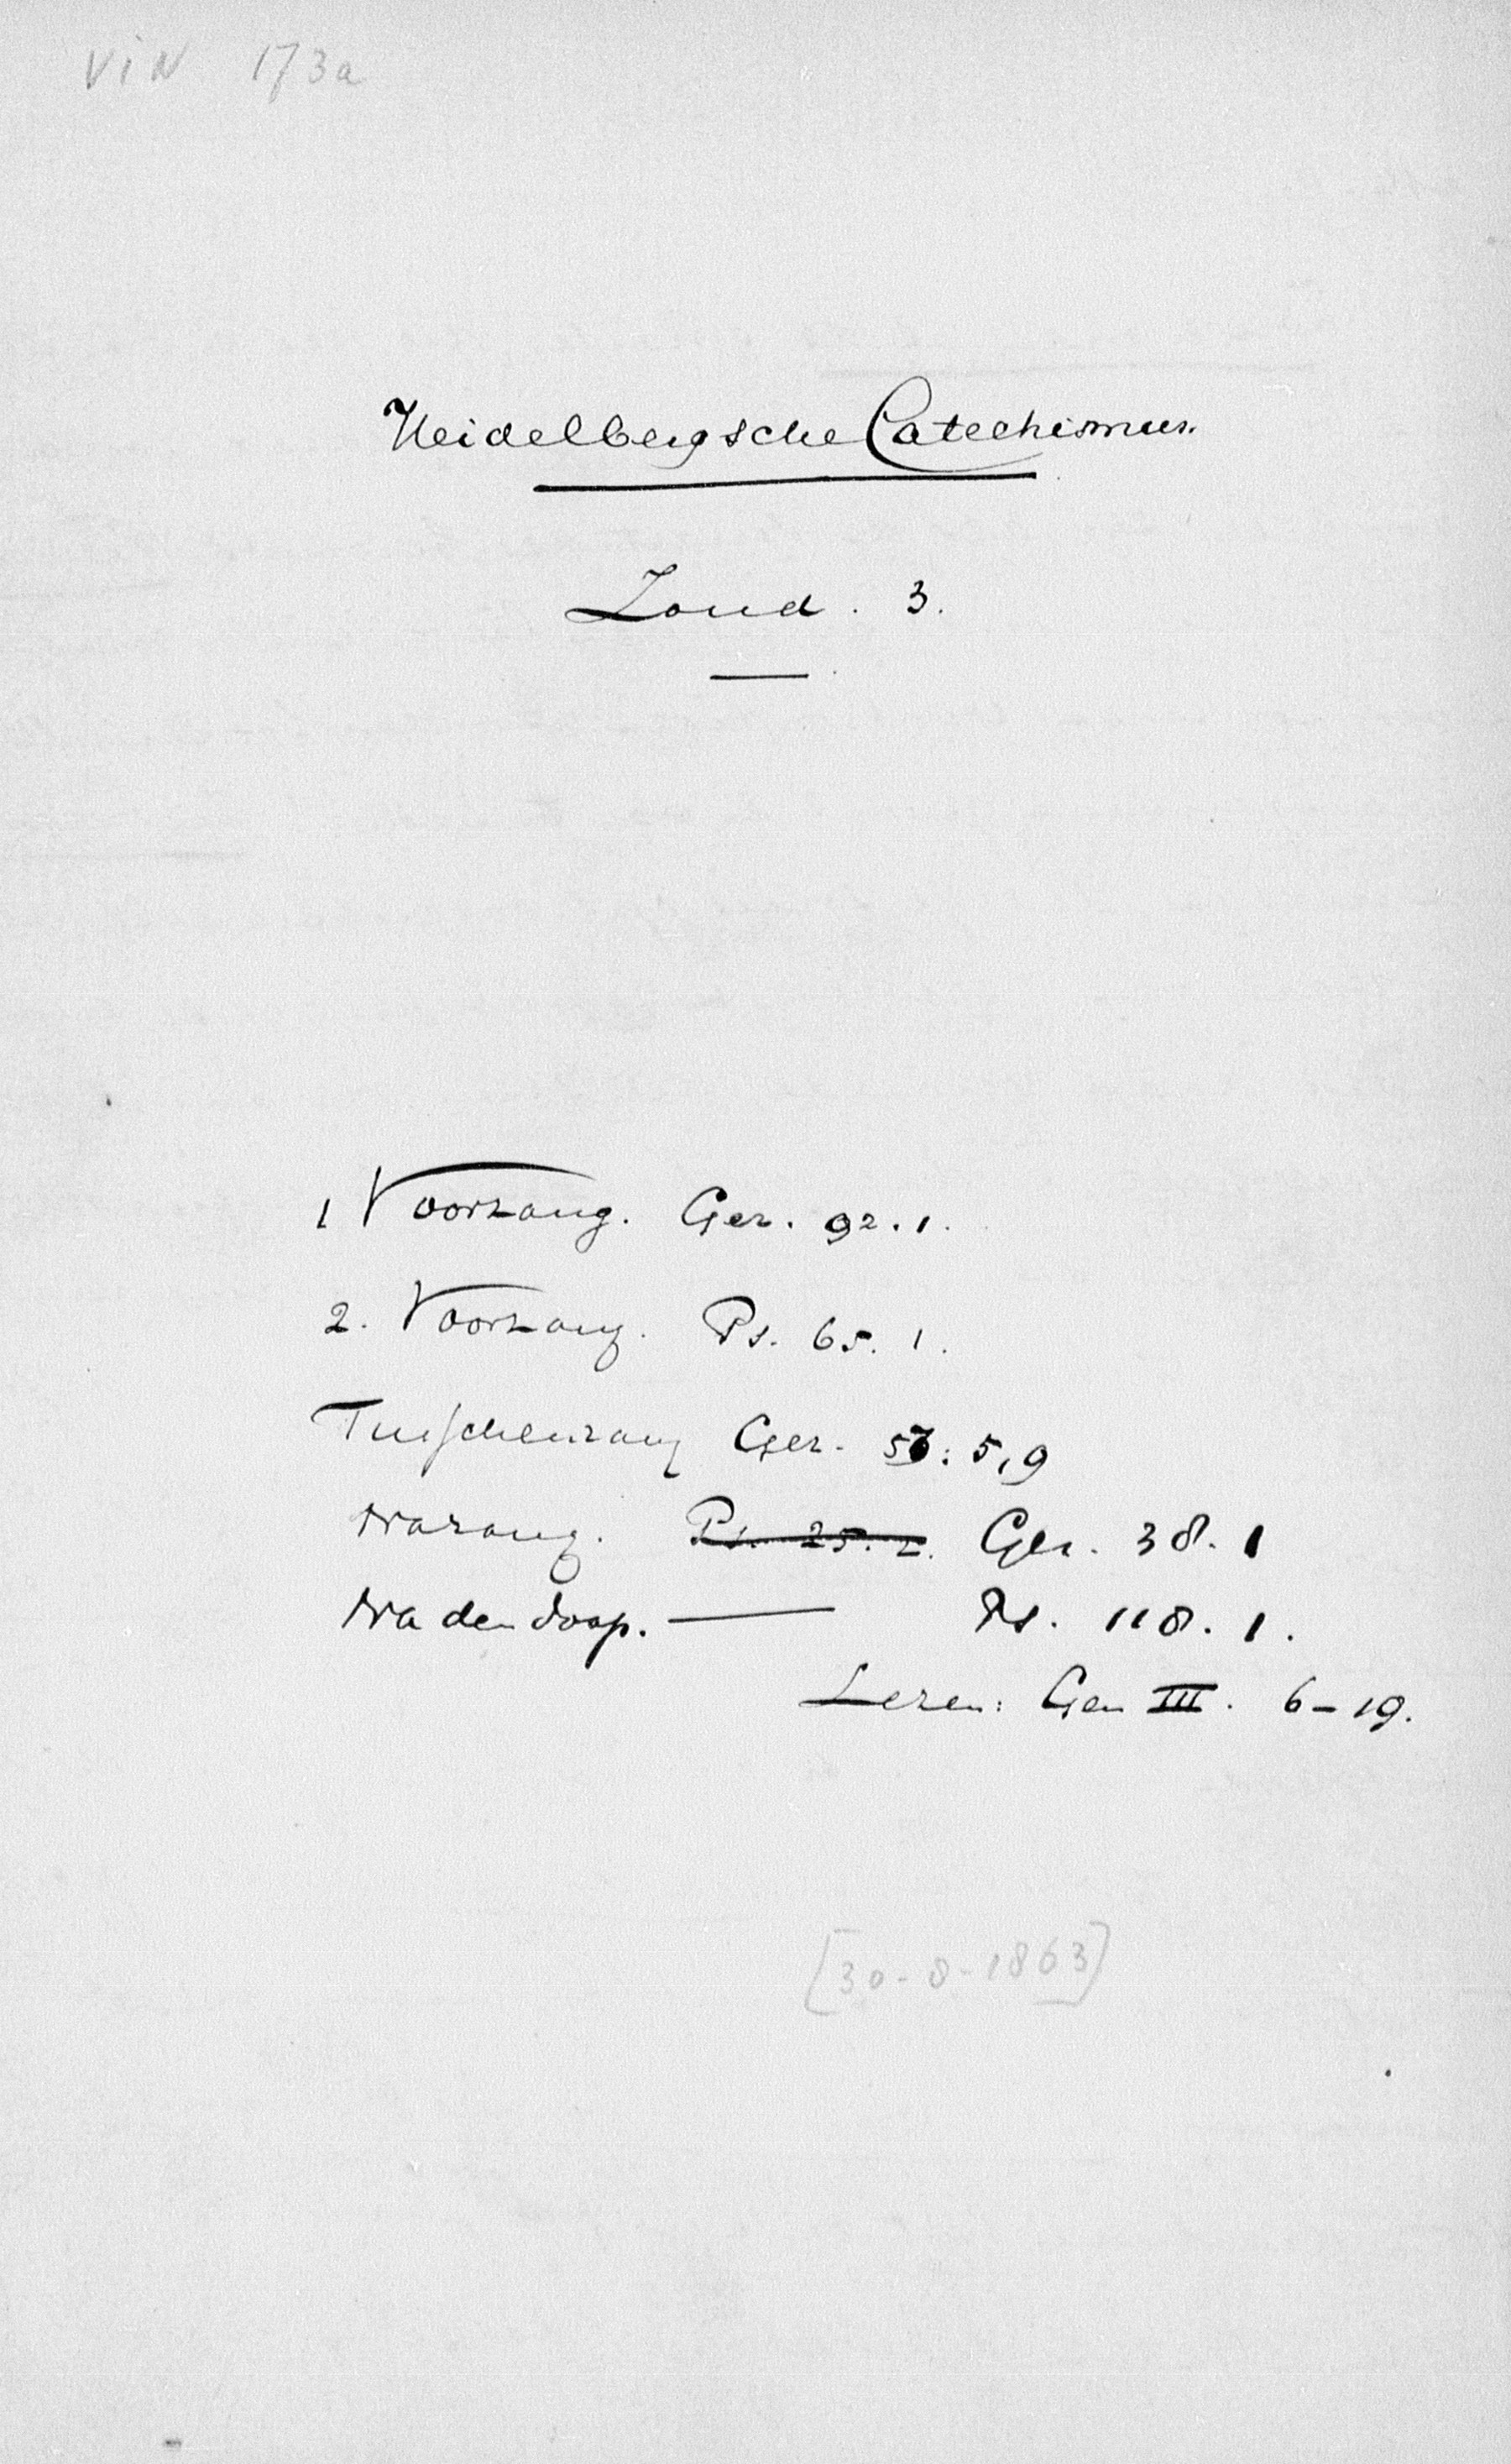 ViN 173a
Heidelbergsche Catechismus.
Zond. 3.
1 Voorzang. Gez. 92.1.
2. Voorzang. Ps. 65. 1.
Tusschenzang Gez. : 5,9
Nazang. Ps. 25. 2. Gez. 38. 1
Na den doop. — Ps. 118. 1.
Lezen: Gen III. 6-19.
[30-8-1863]